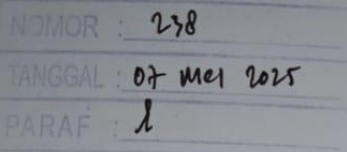 NOMOR : 238
TANGGAL : 07 Mei 2025
PARAF :